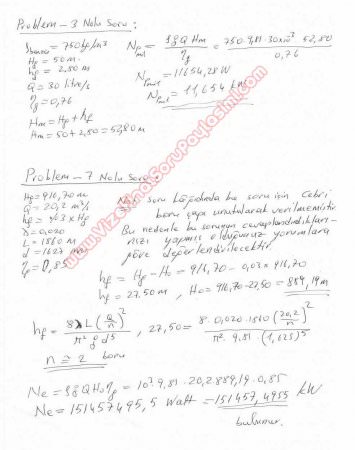 Problem - 3 Nolu Soru :
ρbenzin = 750 kg/m³
Hg = 50 m.
hf = 2,80 m
Q = 30 litre/s
η = 0,76
Hm = Hg + hf
Hm = 50 + 2,80 = 52,80 m
N = ρ g Q Hm / η = 750 · 9,81 · 30x10⁻³ · 52,80 / 0,76
N = 11654,28 W
N = 11,654 kW
Problem - 7 Nolu Soru :
Hg = 916,70 m
Q = 20,2 m³/s
hf = %3 x Hg
λ = 0,020
L = 1860 m
d = 1623 mm
η = 0,85
Not: soru kâğıdında bu soru için Cebri
boru çapı unutularak verilmemiştir
Bu nedenle bu sorunun cevaplandırdıkları-
nızı yapmış olduğunuz yorumlara
göre değerlendirilecektir.
hf = Hg - Ho = 916,70 - 0,03 x 916,70
hf = 27.50 m, Ho = 916,70 - 27,50 = 889,19 m
hf = 8 λ L (Q/n)² / π² g d⁵ , 27,50 = 8 · 0,020 · 1860 (20,2/n)² / π² · 9,81 · (1,623)⁵
n ≅ 2 boru
Ne = ρ g Q Ho η = 10³ · 9,81 · 20,2 · 889,19 · 0,85
Ne = 151457495,5 Watt = 151457,4955 kW
bulunur.
www.VizeFinalSoruPaylasim.com